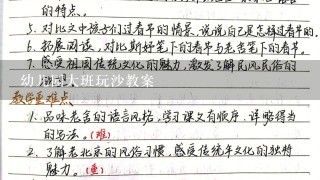 的特点。
5. 对比文中孩子们过春节的情景,说说自己是怎样过春节的。
6. 拓展阅读,对比斯妤笔下的春节与老舍笔下的春节。
7. 感受祖国传统文化的魅力,激发了解民风民俗的
幼儿园大班玩沙教案
教学重难点
1. 品味老舍的语言风格,学习课文有顺序、详略得当
的写法。(难)
2. 了解老北京的风俗习惯,感受传统年文化的独特
魅力。(重)